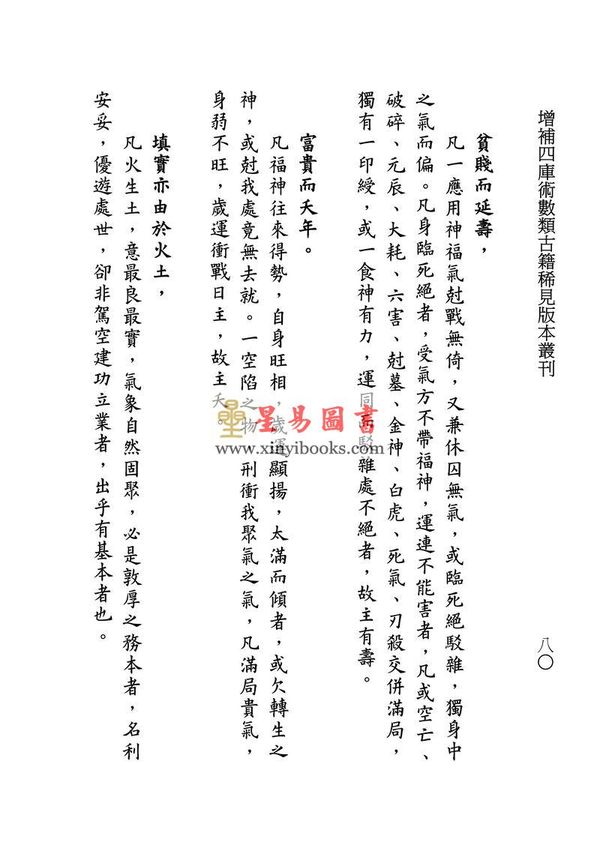 增補四庫術數類古籍稀見版本叢刊
八〇
貧賤而延壽，
凡一應用神福氣尅戰無倚，又兼休囚無氣，或臨死絕駁雜，獨身中
之氣而偏。凡身臨死絕者，受氣方不帶福神，運連不能害者，凡或空亡、
破碎、元辰、大耗、六害、尅墓、金神、白虎、死氣、刃殺交併滿局，
獨有一印綬，或一食神有力，運同而駁雜處不絕者，故主有壽。
富貴而夭年。
凡福神往來得勢，自身旺相，歲運顯揚，太滿而傾者，或欠轉生之
神，或尅我處竟無去就。一空陷之物，刑衝我聚氣之氣，凡滿局貴氣，
身弱不旺，歲運衝戰日主，故主夭。
填實亦由於火土，
凡火生土，意最良最實，氣象自然固聚，必是敦厚之務本者，名利
安妥，優遊處世，卻非駕空建功立業者，出乎有基本者也。
星易圖書
www.xinyibooks.com